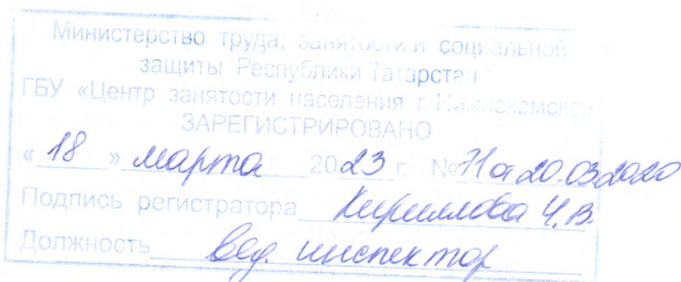 Министерство труда, занятости и социальной
защиты Республики Татарстан
ГБУ «Центр занятости населения г. Нижнекамска»
ЗАРЕГИСТРИРОВАНО
« 18 » марта 2023 г. № 71 от 20.03.2020
Подпись регистратора Кириллова Ч.В.
Должность Вед. инспектор